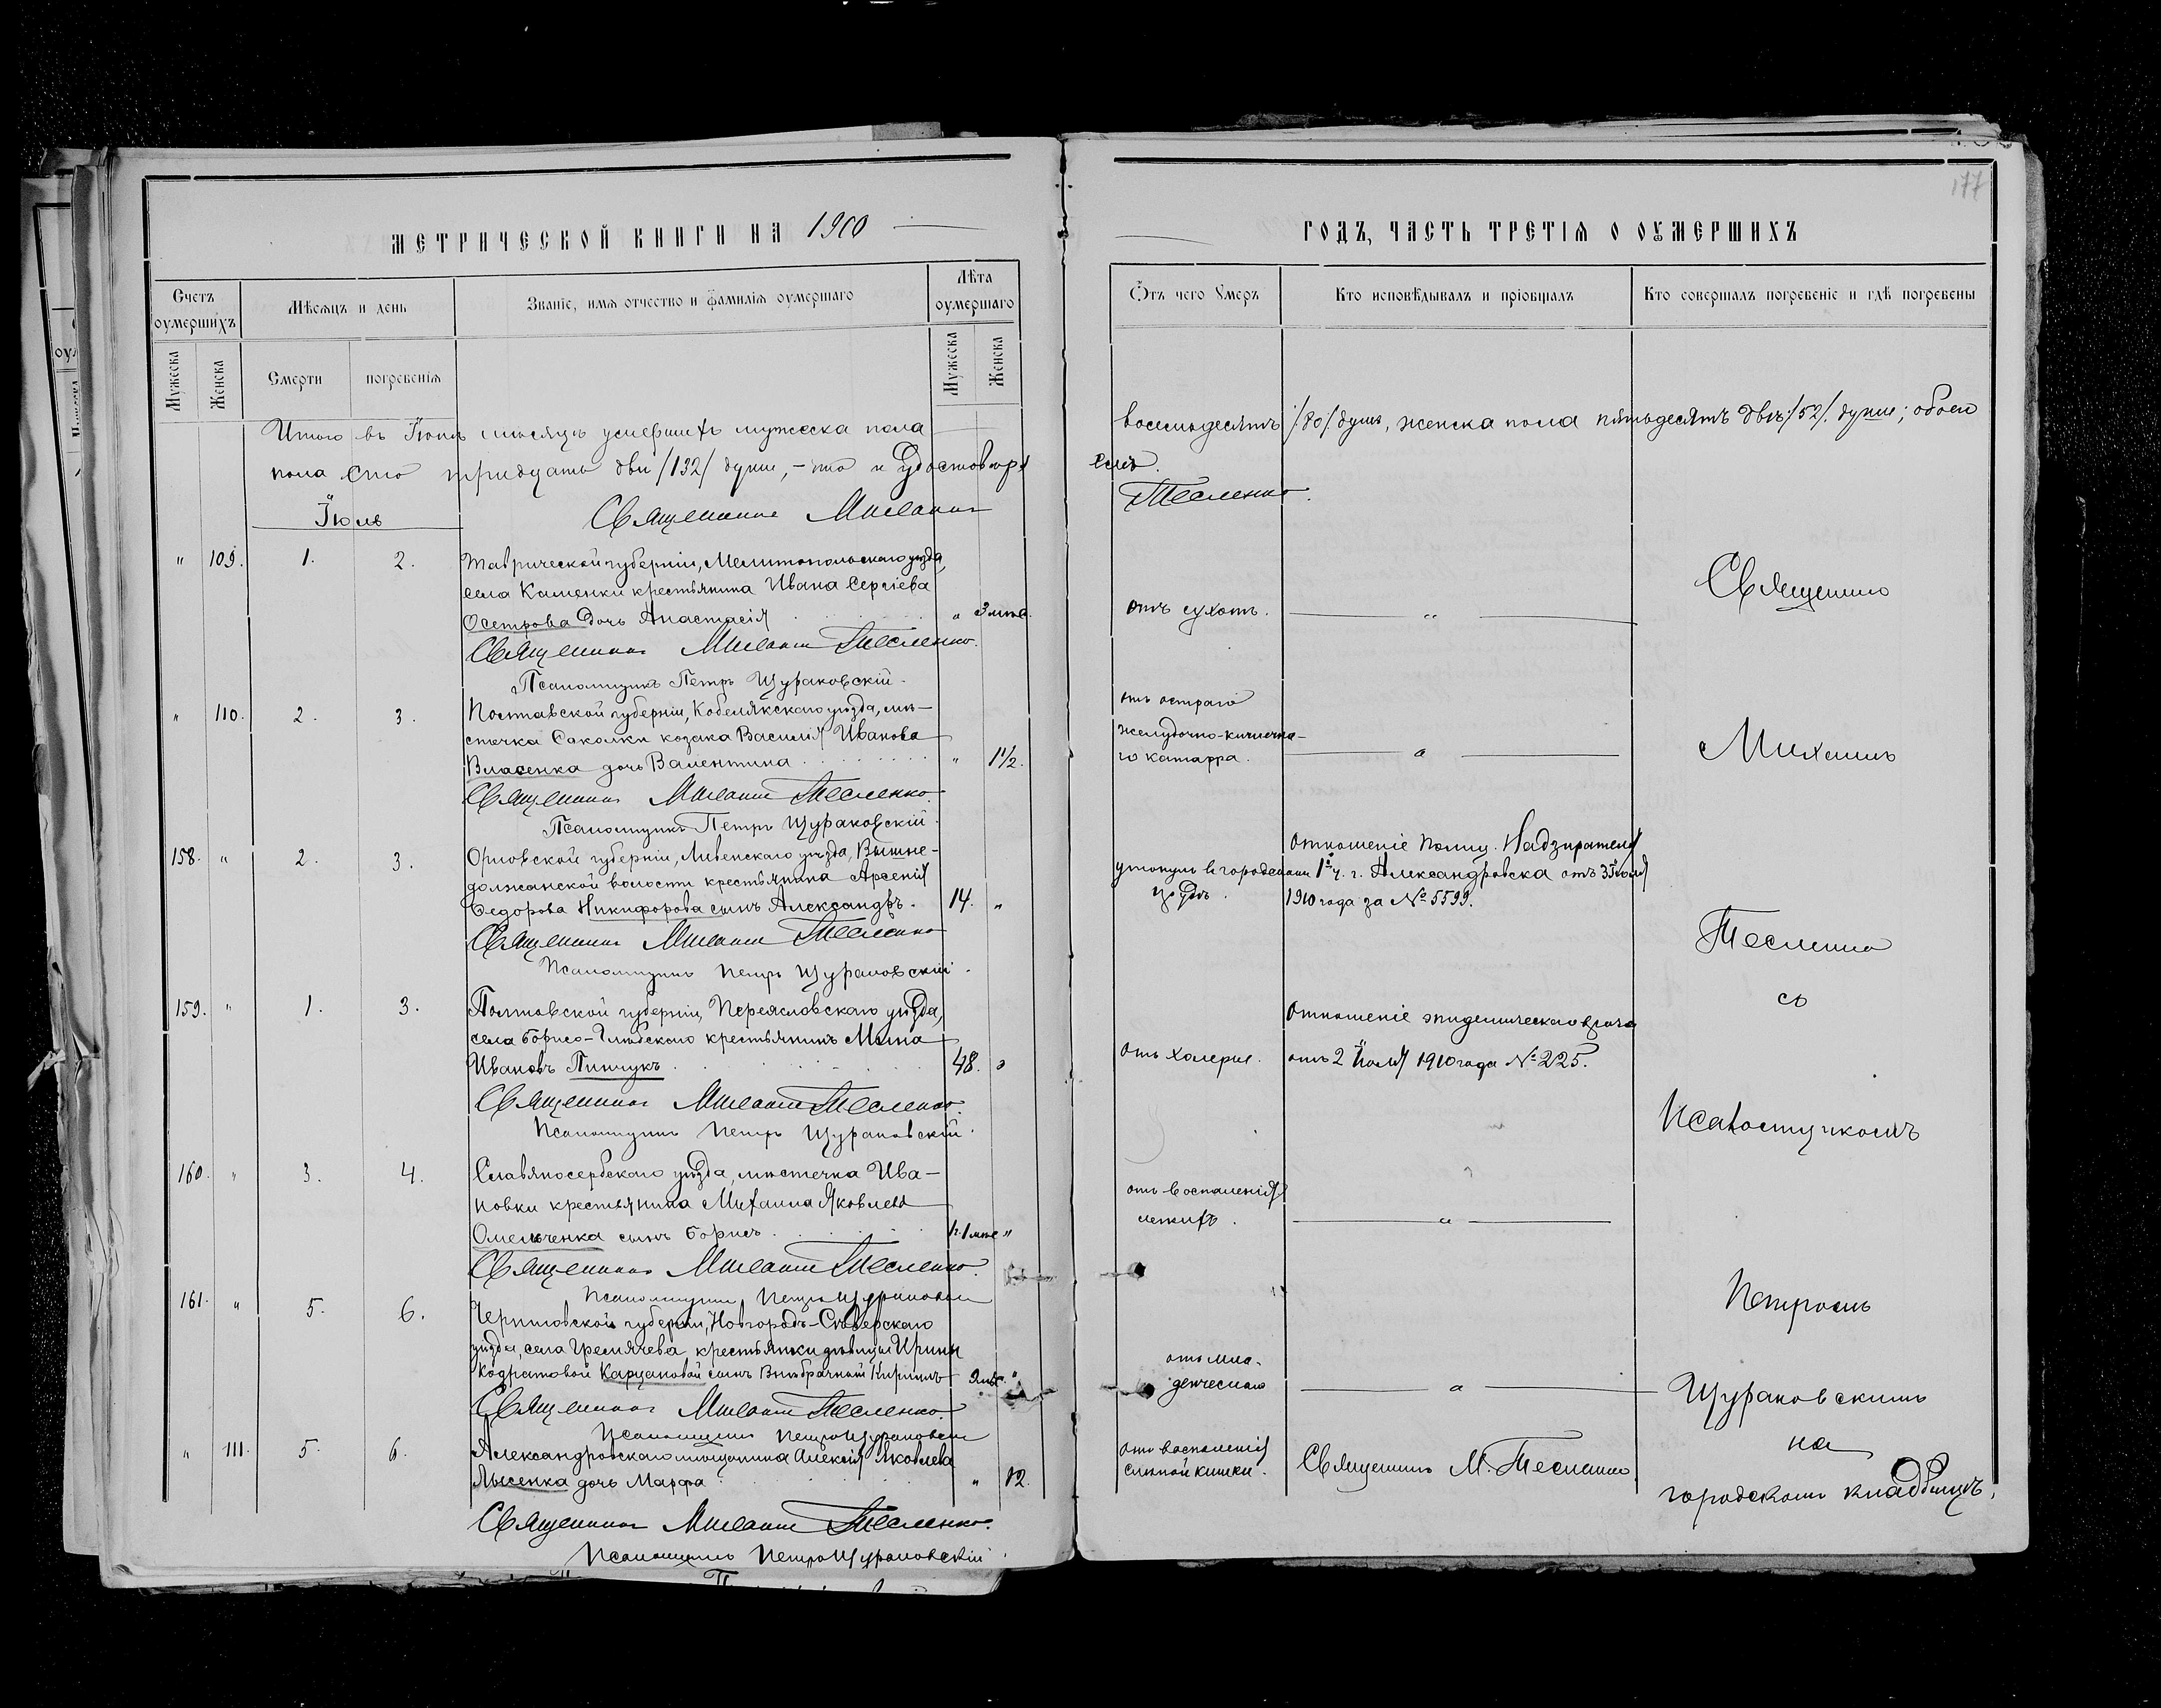 177
МЕТРИЧЕСКОЙ КНИГИ НА 1910
ГОДЪ, ЧАСТЬ ТРЕТІЯ О ОУМЕРШИХЪ
Счетъ оумершихъ
Мѣсяцъ и день
Званіе, имя отчество и фамилія оумершаго
Лѣта оумершаго
Ѿтъ чего Умеръ
Кто исповѣдывалъ и пріобщалъ
Кто совершалъ погребеніе и гдѣ погребены
Мужеска
Женска
Смерти
погребенія
Мужеска
Женска
Итого въ Іюнѣ мѣсяцѣ умершихъ мужеска пола
восемьдесятъ /80/ душъ, женска пола пятьдесятъ двѣ /52/ души; обоего
пола сто тридцать двѣ /132/ души, - что и удостовѣря
емъ.
Священникъ Михаилъ
Тесленко.
Іюль
" 109. 1. 2. Таврической губерніи, Мелитопольскаго уѣзда,
села Каменки крестьянина Ивана Сергіева
Осетрова дочь Анастасія " 3 мѣс.
отъ сухотъ. "
Священникъ Михаилъ Тесленко.
Псаломщикъ Петръ Щураковскій.
" 110. 2. 3. Полтавской губерніи, Кобелякскаго уѣзда, мѣ-
стечка Соколки козака Василія Иванова
Власенка дочь Валентина " 1 1/2.
отъ остраго
желудочно-кишечна-
го катарра. "
Священникъ Михаилъ Тесленко.
Псаломщикъ Петръ Щураковскій.
158. " 2. 3. Орловской губерніи, Ливенскаго уѣзда, Вышне-
должанской волости крестьянина Арсенія
Федорова Никифорова сынъ Александръ. 14. "
утонулъ въ городскомъ
Отношеніе Полиц. Надзирателя
1й ч. г. Александровска отъ 3 Іюля
1910 года за № 5599.
Священникъ Михаилъ Тесленко
Псаломщикъ Петръ Щураковскій.
159. " 1. 3. Полтавской губерніи, Переясловскаго уѣзда,
села Борисо-Глѣбскаго крестьянинъ
Ивановъ Пинчукъ 48. "
Отъ холеры.
Отношеніе эпидемическаго врача
отъ 2 Іюля 1910 года № 225.
Священникъ Михаилъ Тесленко.
Псаломщикъ Петръ Щураковскій.
160. " 3. 4. Славяносербскаго уѣзда, мѣстечка Ива-
новки крестьянина Михаила Яковлева
Омельченка сынъ Борисъ 1г. 1 мѣс "
отъ воспаленія
легкихъ. "
Священникъ Михаилъ Тесленко.
Псаломщикъ Петръ Щураковскій
161. " 5. 6. Черниговской губерніи, Новгородъ-Сѣверскаго
уѣзда, села Гремячева крестьянки дѣвицы Ирины
Кодратовой сынъ Внѣбрачный Кириллъ "
отъ мла-
денческаго "
Священникъ Михаилъ Тесленко.
Псаломщикъ Петръ Щураковскій
" 111. 5. 6. Александровскаго мѣщанина Алексія Яковлева
Лысенка дочь Марфа " 12.
отъ воспаленія
слѣпой кишки.
Священникъ М. Тесленко
Священникъ Михаилъ Тесленко.
Псаломщикъ Петръ Щураковскій.
Священникъ
Михаилъ
Тесленко
съ
Псаломщикомъ
Петромъ
Щураковскимъ
на
городскомъ кладбищѣ.